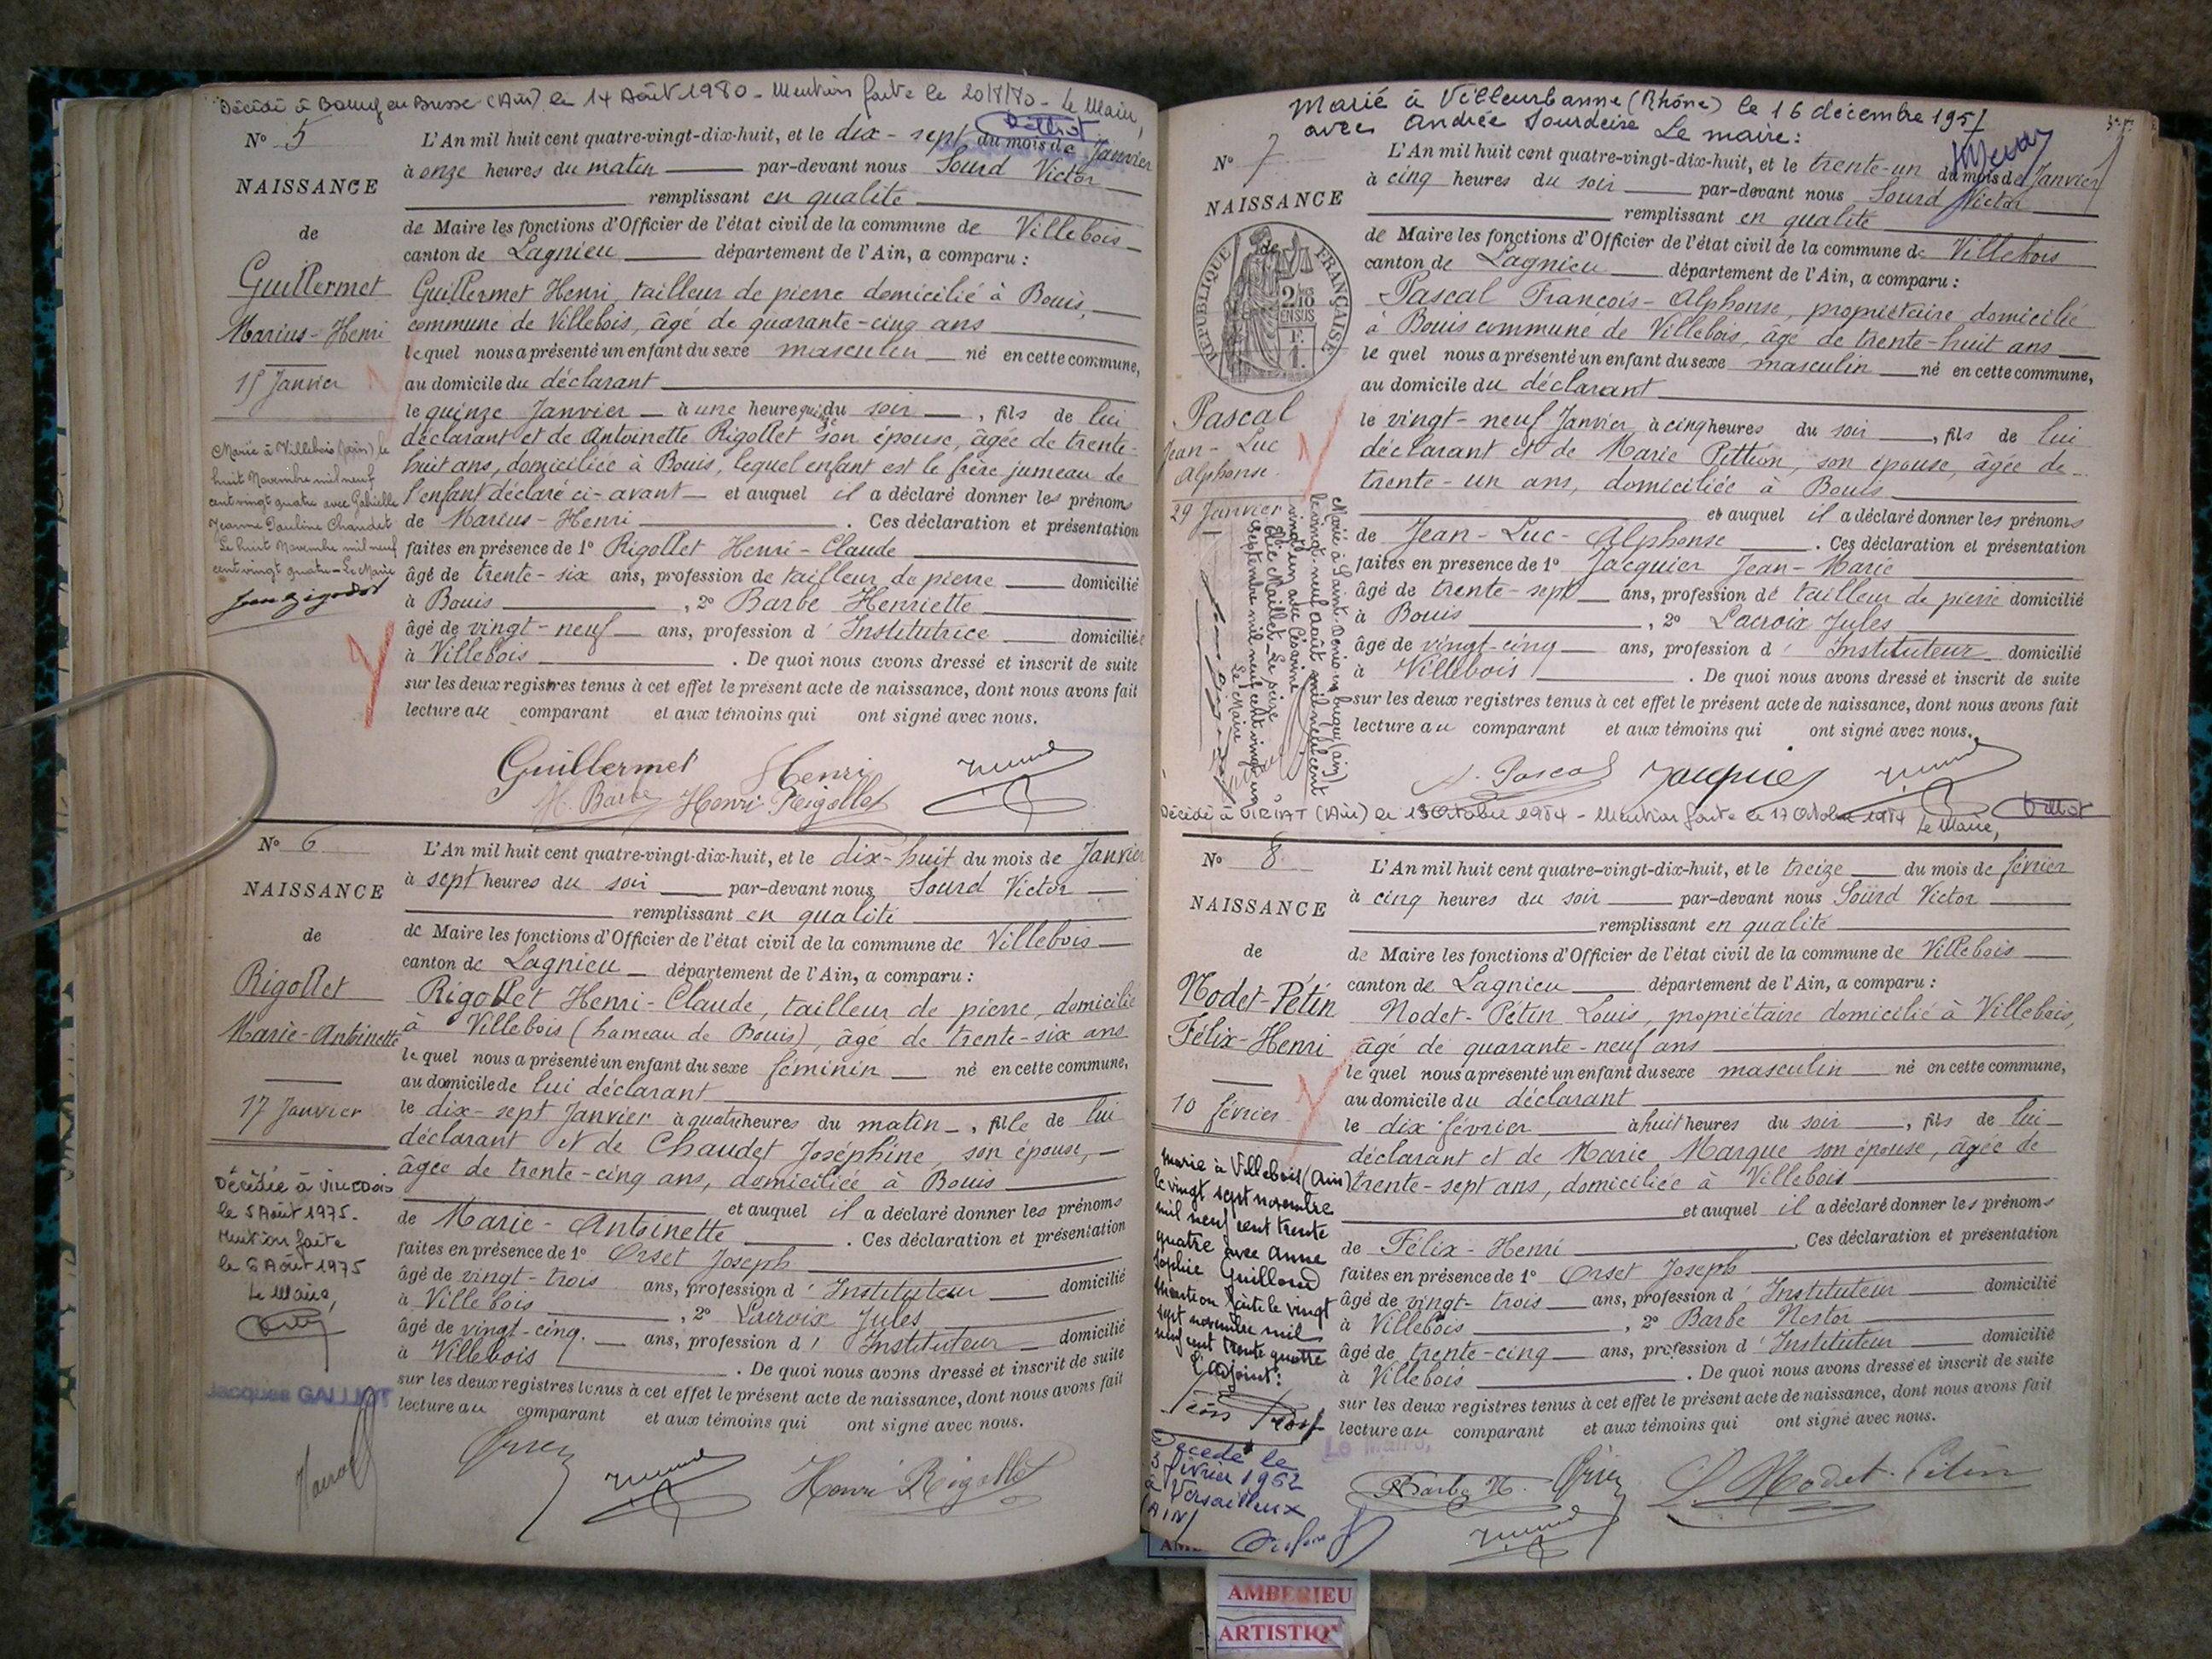 Décédé à Bourg en Bresse (Ain) le 14 Août 1980 - Mention faite le 20/8/80 - Le Maire,
N° 5
NAISSANCE
de
Guillermet
Marius-Henri
15 Janvier
Marié à Villebois (Ain) le
huit Novembre mil neuf
cent vingt quatre avec Gabrielle
Jeanne Pauline Chaudet
Le huit Novembre mil neuf
cent vingt quatre - Le Maire
L'An mil huit cent quatre-vingt-dix-huit, et le dix-sept du mois de Janvier
à onze heures du matin par-devant nous Sourd Victor
remplissant en qualité
de Maire les fonctions d'Officier de l'état civil de la commune de Villebois
canton de Lagnieu département de l'Ain, a comparu :
Guillermet Henri, tailleur de pierre domicilié à Bouis,
commune de Villebois, âgé de quarante-cinq ans
lequel nous a présenté un enfant du sexe masculin né en cette commune,
au domicile du déclarant
le quinze Janvier à une heure du soir, fils de lui
déclarant et de Antoinette Rigollet son épouse, âgée de trente-
huit ans, domiciliée à Bouis, lequel enfant est le frère jumeau de
l'enfant déclaré ci-avant et auquel il a déclaré donner les prénoms
de Marius-Henri. Ces déclaration et présentation
faites en présence de 1° Rigollet Henri-Claude
âgé de trente-six ans, profession de tailleur de pierre domicilié
à Bouis, 2° Barbe Henriette
âgé de vingt-neuf ans, profession d'Institutrice domiciliée
à Villebois. De quoi nous avons dressé et inscrit de suite
sur les deux registres tenus à cet effet le présent acte de naissance, dont nous avons fait
lecture au comparant et aux témoins qui ont signé avec nous.
Guillermet Henri
H. Barbe Henri Rigollet
N° 6
NAISSANCE
de
Rigollet
Marie-Antoinette
17 Janvier
Décédée à Villebois
le 5 Août 1975.
Mention faite
le 6 Août 1975
Le Maire,
Jacques GALLIOT
L'An mil huit cent quatre-vingt-dix-huit, et le dix-huit du mois de Janvier
à sept heures du soir par-devant nous Sourd Victor
remplissant en qualité
de Maire les fonctions d'Officier de l'état civil de la commune de Villebois
canton de Lagnieu département de l'Ain, a comparu :
Rigollet Henri-Claude, tailleur de pierre, domicilié
à Villebois (hameau de Bouis), âgé de trente-six ans
lequel nous a présenté un enfant du sexe féminin né en cette commune,
au domicile de lui déclarant
le dix-sept Janvier à quatre heures du matin, fille de lui
déclarant et de Chaudet Joséphine, son épouse,
âgée de trente-cinq ans, domiciliée à Bouis
et auquel il a déclaré donner les prénoms
de Marie-Antoinette. Ces déclaration et présentation
faites en présence de 1° Orset Joseph
âgé de vingt-trois ans, profession d'Instituteur domicilié
à Villebois, 2° Lacroix Jules
âgé de vingt-cinq ans, profession d'Instituteur domicilié
à Villebois. De quoi nous avons dressé et inscrit de suite
sur les deux registres tenus à cet effet le présent acte de naissance, dont nous avons fait
lecture au comparant et aux témoins qui ont signé avec nous.
Henri Rigollet
Marié à Villeurbanne (Rhône) le 16 décembre 1957
avec Andrée Sourdeise Le maire :
N° 7
NAISSANCE
de
RÉPUBLIQUE FRANÇAISE
2/10 EN SUS
Pascal
Jean-Luc
Alphonse
29 Janvier
Marié à Saint-Denis en Bugey (Ain)
le vingt-neuf Août mil neuf cent
vingt un avec Césarine
Maillet - Le seize
Septembre mil neuf cent vingt un
Le Maire
L'An mil huit cent quatre-vingt-dix-huit, et le trente-un du mois de Janvier
à cinq heures du soir par-devant nous Sourd Victor
remplissant en qualité
de Maire les fonctions d'Officier de l'état civil de la commune de Villebois
canton de Lagnieu département de l'Ain, a comparu :
Pascal François-Alphonse, propriétaire domicilié
à Bouis commune de Villebois, âgé de trente-huit ans
lequel nous a présenté un enfant du sexe masculin né en cette commune,
au domicile du déclarant
le vingt-neuf Janvier à cinq heures du soir, fils de lui
déclarant et de Marie Pittion, son épouse, âgée de
trente-un ans, domiciliée à Bouis
et auquel il a déclaré donner les prénoms
de Jean-Luc-Alphonse. Ces déclaration et présentation
faites en présence de 1° Jacquier Jean-Marie
âgé de trente-sept ans, profession de tailleur de pierre domicilié
à Bouis, 2° Lacroix Jules
âgé de vingt-cinq ans, profession d'Instituteur domicilié
à Villebois. De quoi nous avons dressé et inscrit de suite
sur les deux registres tenus à cet effet le présent acte de naissance, dont nous avons fait
lecture au comparant et aux témoins qui ont signé avec nous.
A. Pascal Jacquier
Décédé à VIRIAT (Ain) le 13 Octobre 1984 - Mention faite le 17 Octobre 1984 Le Maire,
N° 8
NAISSANCE
de
Nodet-Pétin
Félix-Henri
10 février
Marié à Villebois (Ain)
le vingt sept novembre
mil neuf cent trente
quatre avec Anne
Sophie Guilland
Mention faite le vingt
sept novembre mil
neuf cent trente quatre
L'adjoint :
Décédé le
3 février 1962
à Versailleux
(AIN)
Le Maire,
L'An mil huit cent quatre-vingt-dix-huit, et le treize du mois de février
à cinq heures du soir par-devant nous Sourd Victor
remplissant en qualité
de Maire les fonctions d'Officier de l'état civil de la commune de Villebois
canton de Lagnieu département de l'Ain, a comparu :
Nodet-Pétin Louis, propriétaire domicilié à Villebois,
âgé de quarante-neuf ans
lequel nous a présenté un enfant du sexe masculin né en cette commune,
au domicile du déclarant
le dix février à huit heures du soir, fils de lui
déclarant et de Marie Margue son épouse, âgée de
trente-sept ans, domiciliée à Villebois
et auquel il a déclaré donner les prénoms
de Félix-Henri, Ces déclaration et présentation
faites en présence de 1° Orset Joseph
âgé de vingt-trois ans, profession d'Instituteur domicilié
à Villebois, 2° Barbe Nestor
âgé de trente-cinq ans, profession d'Instituteur domicilié
à Villebois. De quoi nous avons dressé et inscrit de suite
sur les deux registres tenus à cet effet le présent acte de naissance, dont nous avons fait
lecture au comparant et aux témoins qui ont signé avec nous.
Barbe N. L Nodet-Pétin
AMBERIEU
ARTISTIQ